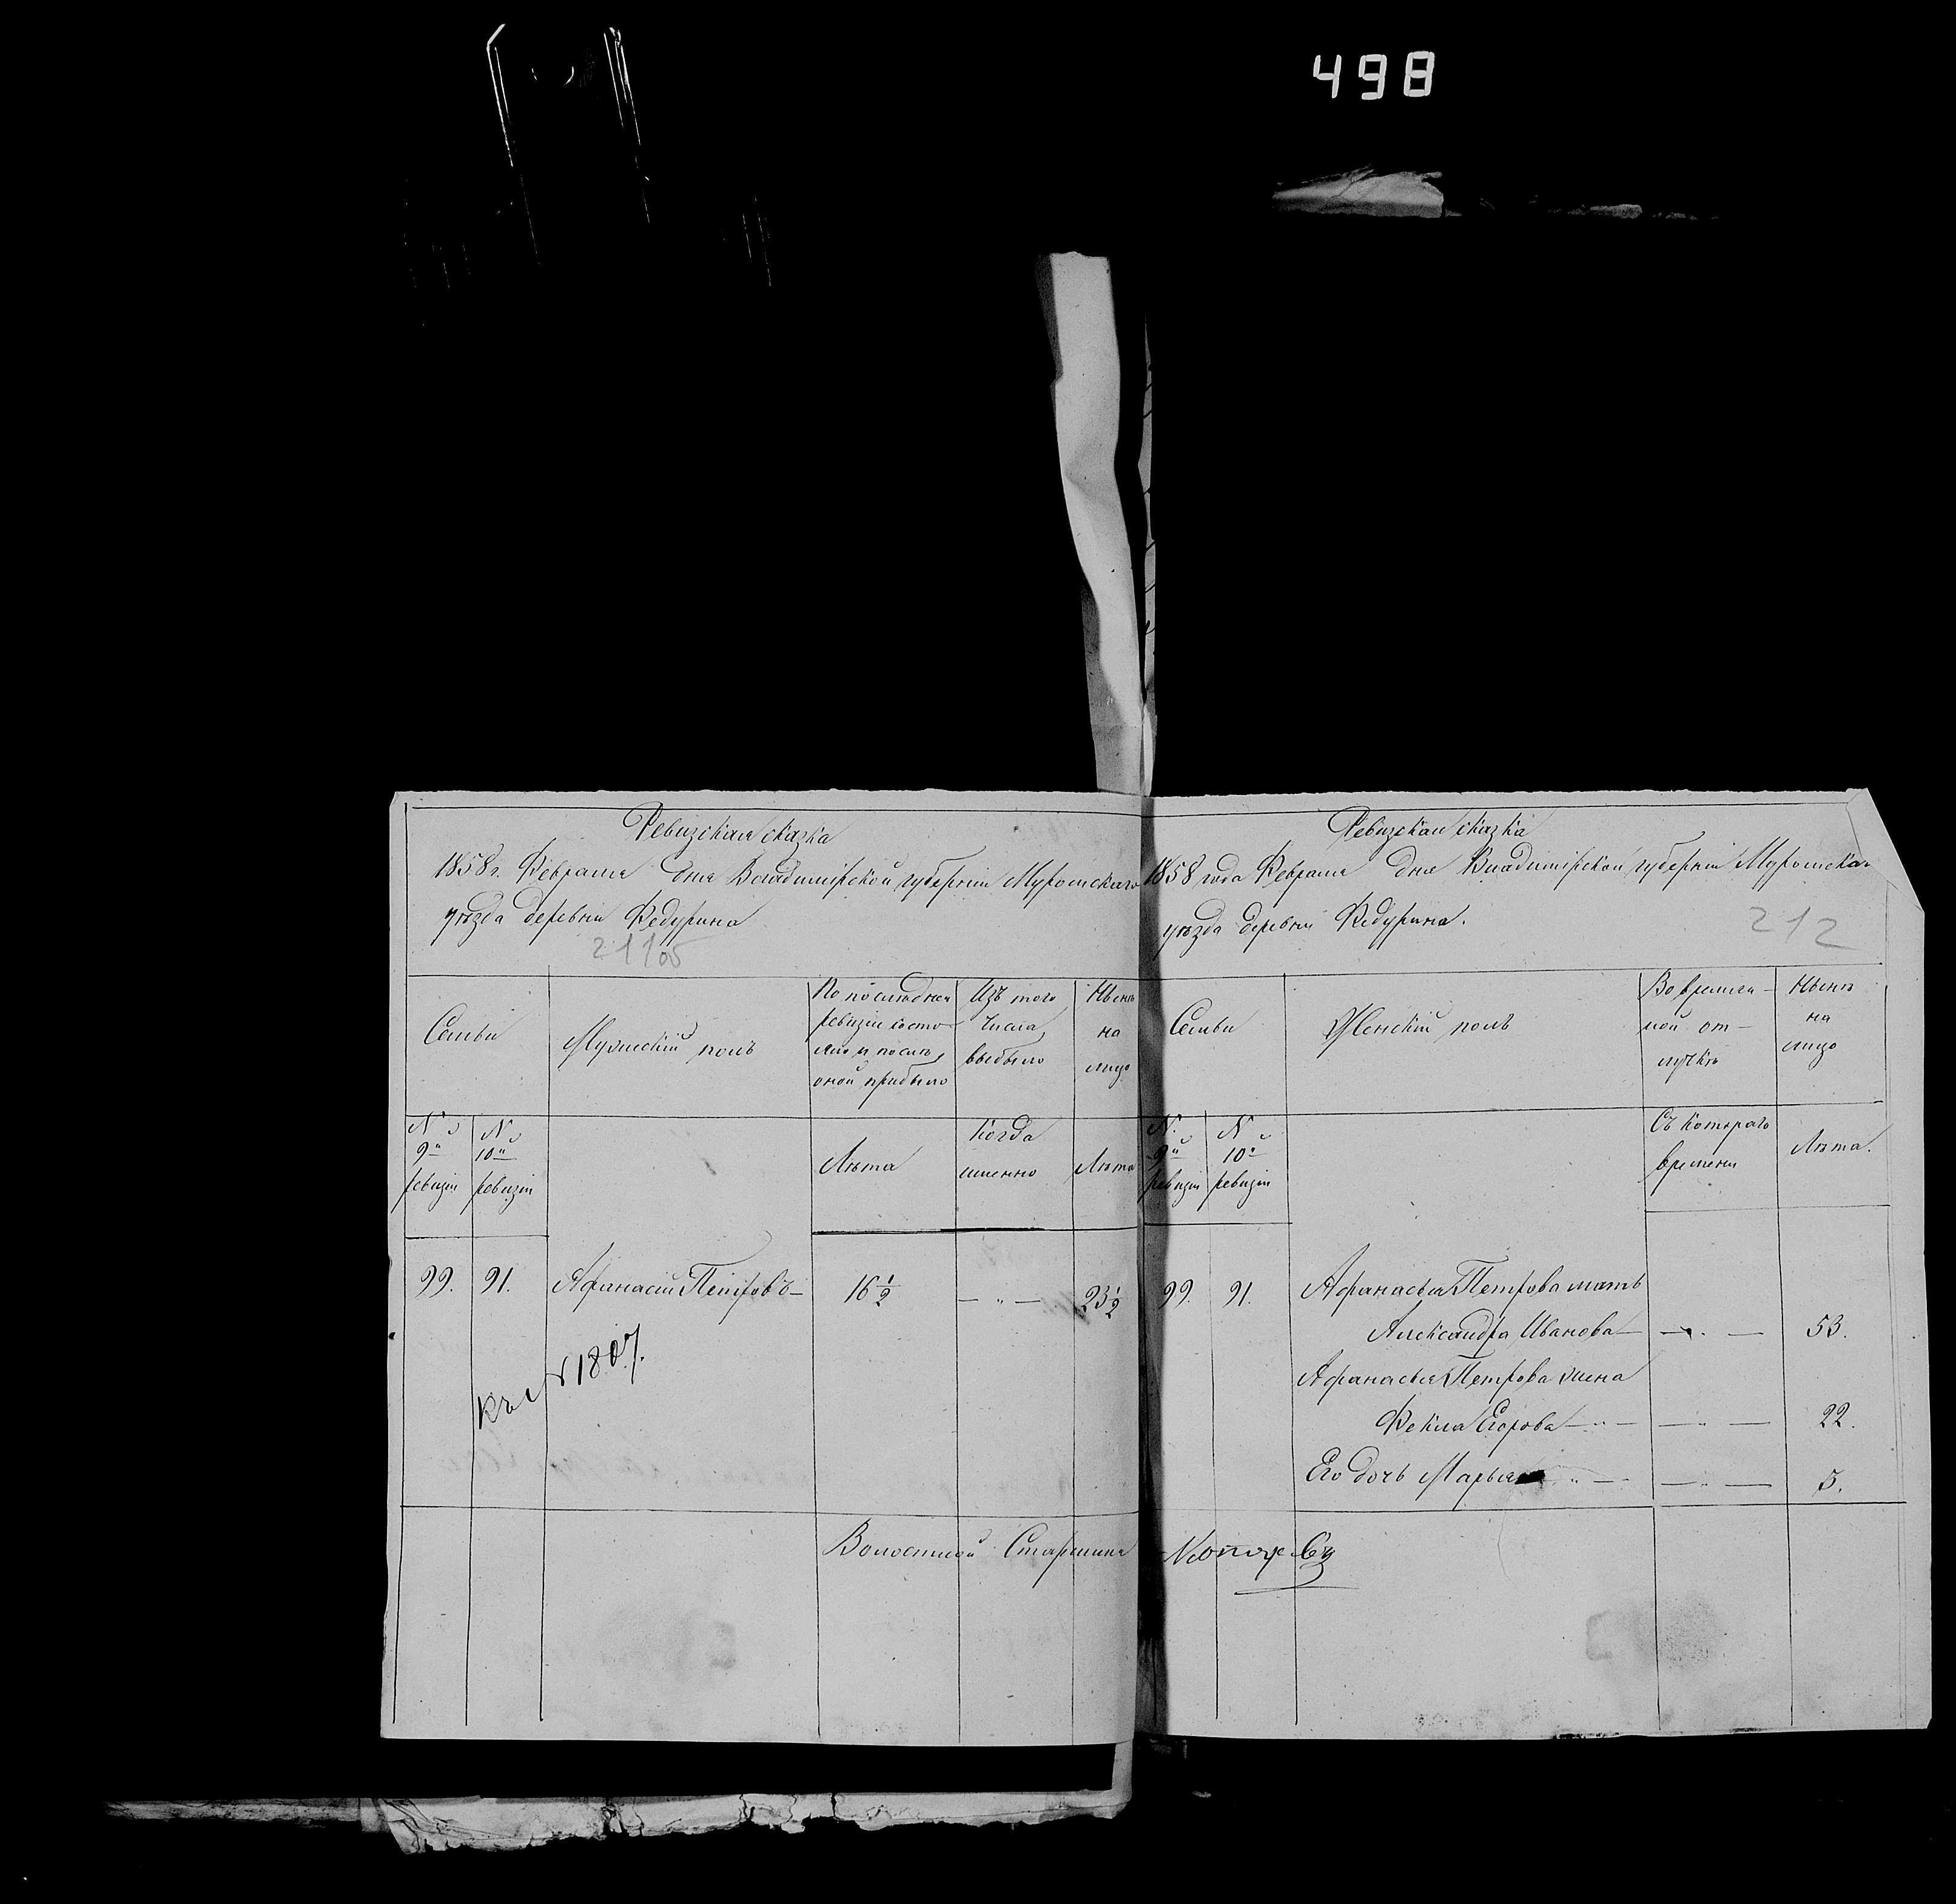 498
Ревизская сказка
1858 г. Февраля дня Владимірской губерніи Муромскаго
уѣзда деревни Федурина
211 об
Семьи
Мужескій полъ
По послѣдней
ревизіи состо-
яло и послѣ
оной прибыло
Изъ того
числа
выбыло
Нынѣ
на
лицо
№
9й
ревизіи
№
10й
ревизіи
Лѣта
Когда
именно
Лѣта
99. 91. Афанасій Петровъ— 16 1/2 — „ — 23 1/2
къ № 1807.
Волостной Старшина
Ревизская сказка
1858 года Февраля дня Владимірской губерніи Муромска
уѣзда деревни Федурина.
212
Семьи
Женскій полъ
Во времен-
ной от-
лучкѣ
Нынѣ
на
лицо
№.
9й
ревизіи
№
10й
ревизіи
Съ котораго
времени
Лѣта.
99. 91. Афанасья Петрова мать
Александра Иванова— — „ — 53.
Афанасья Петрова жена
Фекла Егорова — „ — — „ — 22.
Его дочь Марья „ — — „ — 5.